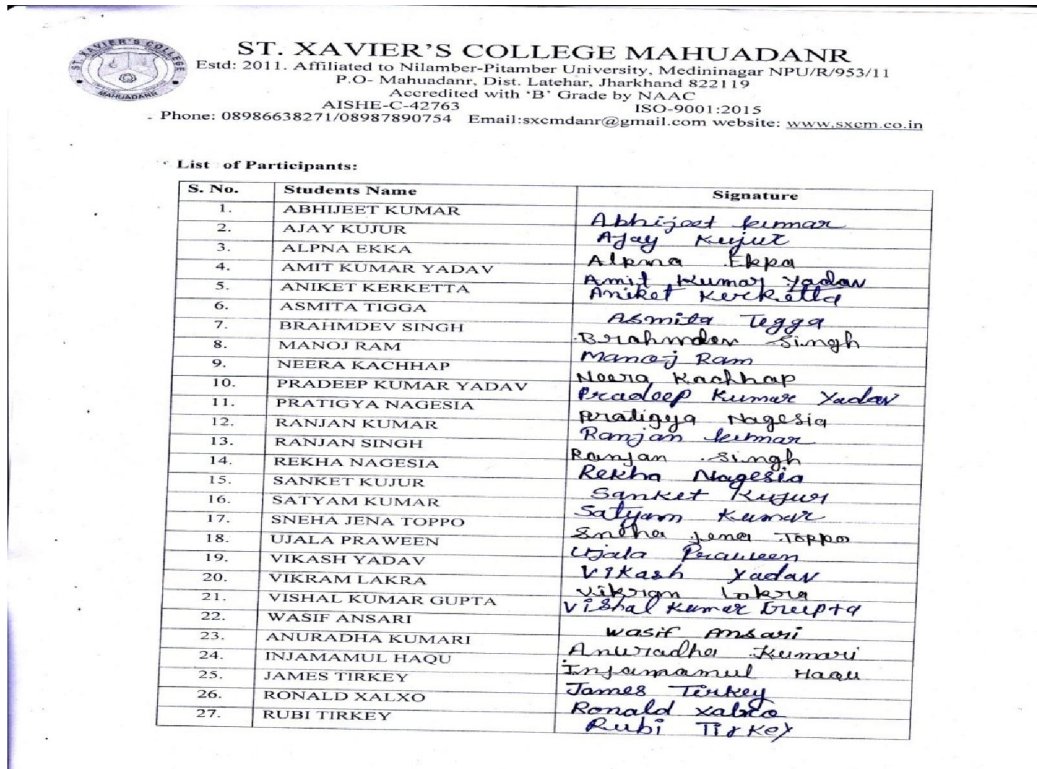 ST. XAVIER'S COLLEGE
MAHUADANR
ST. XAVIER'S COLLEGE MAHUADANR
Estd: 2011. Affiliated to Nilamber-Pitamber University, Medininagar NPU/R/953/11
P.O- Mahuadanr, Dist. Latehar, Jharkhand 822119
Accredited with 'B' Grade by NAAC
AISHE-C-42763 ISO-9001:2015
Phone: 08986638271/08987890754 Email:sxcmdanr@gmail.com website: www.sxcm.co.in
List of Participants:
S. No. Students Name Signature
1. ABHIJEET KUMAR Abhijeet kumar
2. AJAY KUJUR Ajay Kujur
3. ALPNA EKKA Alpna Ekka
4. AMIT KUMAR YADAV Amit Kumar Yadav
5. ANIKET KERKETTA Aniket Kerketta
6. ASMITA TIGGA Asmita Tigga
7. BRAHMDEV SINGH Brahmdev Singh
8. MANOJ RAM Manoj Ram
9. NEERA KACHHAP Neera Kachhap
10. PRADEEP KUMAR YADAV Pradeep Kumar Yadav
11. PRATIGYA NAGESIA Pratigya Nagesia
12. RANJAN KUMAR Ranjan kumar
13. RANJAN SINGH Ranjan Singh
14. REKHA NAGESIA Rekha Nagesia
15. SANKET KUJUR Sanket Kujur
16. SATYAM KUMAR Satyam Kumar
17. SNEHA JENA TOPPO Sneha Jena Toppo
18. UJALA PRAWEEN Ujala Praween
19. VIKASH YADAV Vikash Yadav
20. VIKRAM LAKRA Vikram Lakra
21. VISHAL KUMAR GUPTA Vishal Kumar Gupta
22. WASIF ANSARI Wasif Ansari
23. ANURADHA KUMARI Anuradha Kumari
24. INJAMAMUL HAQU Injamamul Haqu
25. JAMES TIRKEY James Tirkey
26. RONALD XALXO Ronald Xalxo
27. RUBI TIRKEY Rubi Tirkey